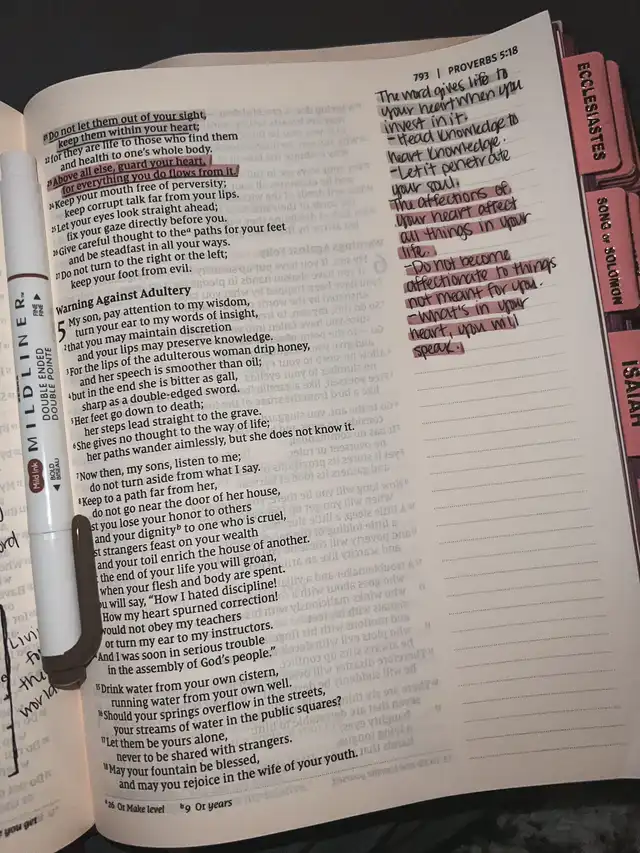 793 | PROVERBS 5:18
21 Do not let them out of your sight,
keep them within your heart;
22 for they are life to those who find them
and health to one's whole body.
23 Above all else, guard your heart,
for everything you do flows from it.
24 Keep your mouth free of perversity;
keep corrupt talk far from your lips.
25 Let your eyes look straight ahead;
fix your gaze directly before you.
26 Give careful thought to the a paths for your feet
and be steadfast in all your ways.
27 Do not turn to the right or the left;
keep your foot from evil.
Warning Against Adultery
5 My son, pay attention to my wisdom,
turn your ear to my words of insight,
2 that you may maintain discretion
and your lips may preserve knowledge.
3 For the lips of the adulterous woman drip honey,
and her speech is smoother than oil;
4 but in the end she is bitter as gall,
sharp as a double-edged sword.
5 Her feet go down to death;
her steps lead straight to the grave.
6 She gives no thought to the way of life;
her paths wander aimlessly, but she does not know it.
7 Now then, my sons, listen to me;
do not turn aside from what I say.
8 Keep to a path far from her,
do not go near the door of her house,
st you lose your honor to others
and your dignity b to one who is cruel,
st strangers feast on your wealth
and your toil enrich the house of another.
the end of your life you will groan,
when your flesh and body are spent.
u will say, "How I hated discipline!
How my heart spurned correction!
would not obey my teachers
or turn my ear to my instructors.
And I was soon in serious trouble
in the assembly of God's people."
15 Drink water from your own cistern,
running water from your own well.
16 Should your springs overflow in the streets,
your streams of water in the public squares?
17 Let them be yours alone,
never to be shared with strangers.
18 May your fountain be blessed,
and may you rejoice in the wife of your youth.
a 26 Or Make level b 9 Or years
The word gives life to
your heart when you
invest in it.
- Head knowledge to
heart knowledge.
- Let it penetrate
your soul.
The affections of
your heart affect
all things in your
life.
- Do not become
affectionate to things
not meant for you.
- What's in your
heart, you will
speak.
ECCLESIASTES
SONG OF SOLOMON
ISAIAH
MILDLINER
DOUBLE ENDED
DOUBLE POINTE
FINE
FINE
Mild Ink
BOLD
BISEAU
Livi
fo
the
world
you get